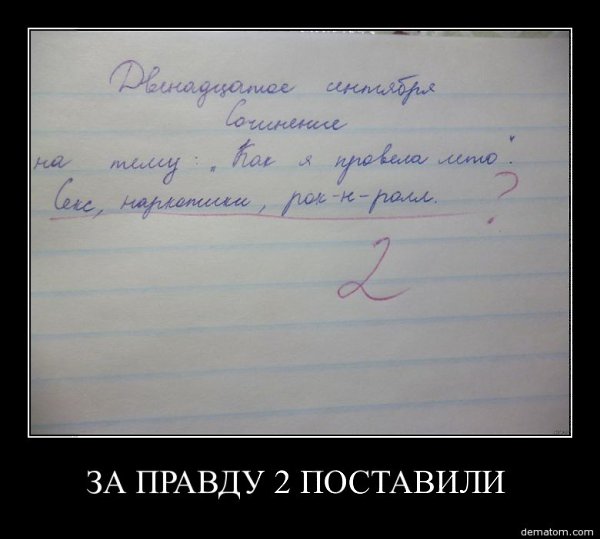 Двенадцатое сентября
Сочинение
на тему: „Как я провела лето".
Секс, наркотики, рок-н-ролл. ?
2
ЗА ПРАВДУ 2 ПОСТАВИЛИ
dematom.com